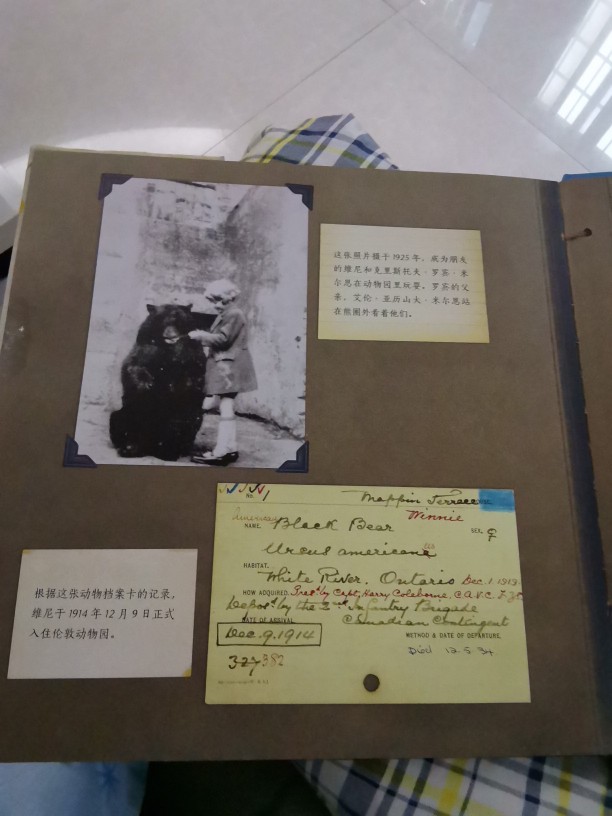 这张照片摄于1925年，成为朋友
的维尼和克里斯托夫·罗宾·米
尔恩在动物园里玩耍。罗宾的父
亲，艾伦·亚历山大·米尔恩站
在熊圈外看着他们。
No. 1
Mappin Terraces
Winnie
American
NAME. Black Bear
SEX. ♀
Ursus americanus
HABITAT.
White River. Ontario Dec. 1. 1919.
HOW ACQUIRED. Pres. by Capt. Harry Colebourne, C.A.V.C.
Depos. by the 2nd Infantry Brigade
Canadian Contingent
DATE OF ARRIVAL
Dec. 9. 1914
METHOD & DATE OF DEPARTURE.
Died 12.5.34
327 382
根据这张动物档案卡的记录，
维尼于1914年12月9日正式
入住伦敦动物园。